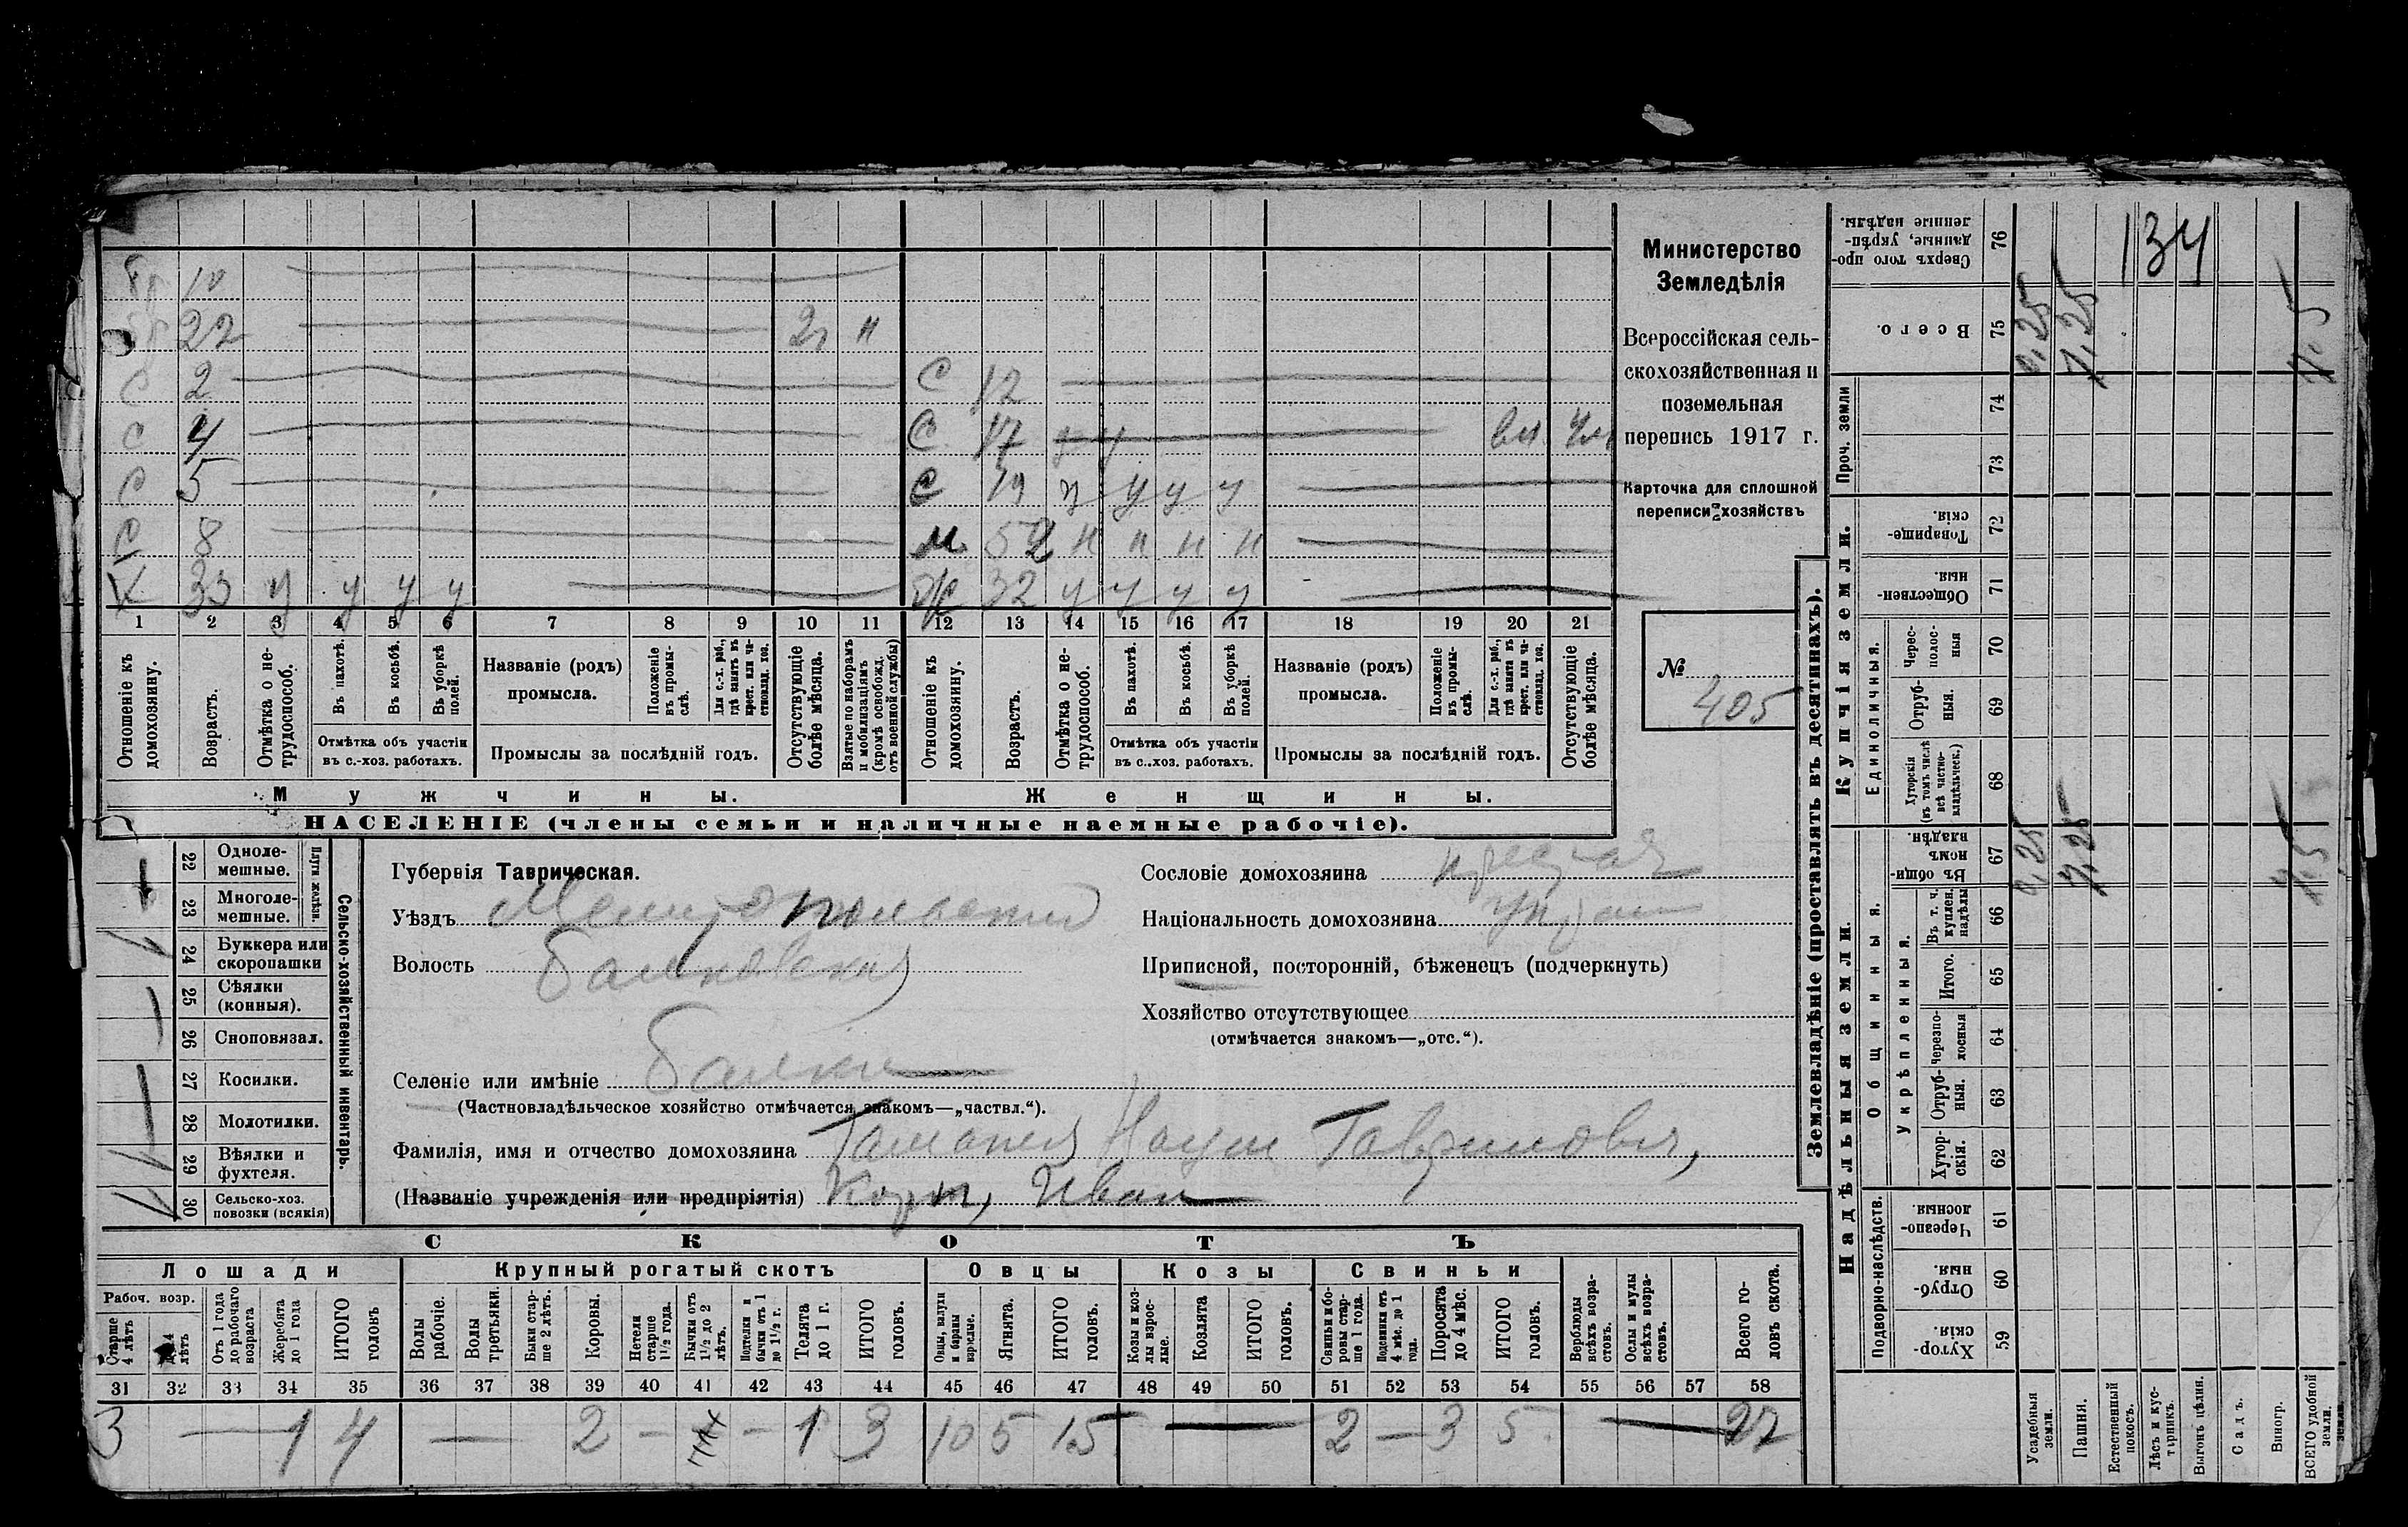 Бр 10
22 2г н
С 2 С 12
С 4 С 17 у у
С 5 С 19 у у у у
С 8 м 52 н н н н
Х 33 у у у у 32 у у у у
1 2 3 4 5 6 7 8 9 10 11 12 13 14 15 16 17 18 19 20 21
Отношеніе къ домохозяину.
Возрастъ.
Отмѣтка о не-трудоспособ.
Въ пахотѣ.
Въ косьбѣ.
Въ уборкѣ полей.
Отмѣтка объ участіи въ с.-хоз. работахъ.
Названіе (родъ) промысла.
Положеніе въ промы-слѣ.
Для с.-х. раб., гдѣ занятъ въ крест. или ча-стновлад. хоз.
Промыслы за послѣдній годъ.
Отсутствующіе болѣе мѣсяца.
Взятые по наборамъ и мобилизаціямъ (кромѣ освобожд. отъ военной службы)
Отношеніе къ домохозяину.
Возрастъ.
Отмѣтка о не-трудоспособ.
Въ пахотѣ.
Въ косьбѣ.
Въ уборкѣ полей.
Отмѣтка объ участіи въ с..хоз. работахъ.
Названіе (родъ) промысла.
Положеніе въ промы-слѣ.
Для с.-х. раб., гдѣ занята въ крест. или ча-стновлад. хоз.
Промыслы за послѣдній годъ.
Отсутствующіе болѣе мѣсяца.
Мужчины. Женщины.
НАСЕЛЕНІЕ (члены семьи и наличные наемные рабочіе).
Министерство
Земледѣлія
Всероссійская сель-
скохозяйственная и
поземельная
перепись 1917 г.
Карточка для сплошной
переписи хозяйствъ
№
405
Сельско-хозяйственный инвентарь.
Плуги желѣзн.
22 Одноле-мешные.
23 Многоле-мешные.
24 Буккера или скоропашки
25 Сѣялки (конныя).
26 Сноповязал.
27 Косилки.
28 Молотилки.
29 Вѣялки и фухтеля.
30 Сельско-хоз. повозки (всякія)
Губернія Таврическая.
Уѣздъ Мелитопольский
Волость Балковская
Селеніе или имѣніе Балки
(Частновладѣльческое хозяйство отмѣчается знакомъ—„частвл.“).
Фамилія, имя и отчество домохозяина Наум Гаврилович,
(Названіе учрежденія или предпріятія) Иван
Сословіе домохозяина
Національность домохозяина
Приписной, посторонній, бѣженецъ (подчеркнуть)
Хозяйство отсутствующее
(отмѣчается знакомъ—„отс.“).
СКОТЪ
Лошади Крупный рогатый скотъ Овцы Козы Свиньи
Рабоч. возр.
Старше 4 лѣтъ
лѣтъ
Отъ 1 года до рабочаго возраста
Жеребята до 1 года
ИТОГО головъ
Волы рабочіе.
Волы третьяки.
Быки стар-ше 2 лѣтъ.
Коровы.
Нетели старше 1½ года.
Бычки отъ 1½ до 2 лѣтъ.
Подтелки и бычки отъ 1 до 1½ г.
Телята до 1 г.
ИТОГО головъ.
Овцы, валухи и бараны взрослые.
Ягнята.
ИТОГО головъ.
Козы и коз-лы взрос-лые.
Козлята
ИТОГО головъ.
Свиньи и бо-ровы стар-ше 1 года.
Подсвинки отъ 4 мѣс. до 1 года.
Поросята до 4 мѣс.
ИТОГО головъ.
Верблюды всѣхъ возра-стовъ.
Ослы и мулы всѣхъ возра-стовъ.
Всего го-ловъ скота.
31 32 33 34 35 36 37 38 39 40 41 42 43 44 45 46 47 48 49 50 51 52 53 54 55 56 57 58
3 — 1 4 — 2 — — 1 3 10 5 15 — 2 — 3 5 — 27
Землевладѣніе (проставлять въ десятинахъ).
Купчія земли.
Надѣльныя земли.
Проч. земли
Единоличныя.
Общинныя.
Укрѣпленныя.
Подворно-наслѣдств.
76 Сверхъ того про-данные, укрѣп-ленные надѣлы.
134
75 Всего. 0,25 7,25 7.5
74
73
72 Товарище-скія.
71 Обществен-ныя.
70 Черес-полос-ныя
69 Отруб-ныя.
68 Хуторскія (въ томъ числѣ всѣ частно-владѣльческ.)
67 Въ общи-номъ владѣн. 0,25 7,25 7.5
66 Въ т. ч. куплен. надѣлы
65 Итого.
64 Черезпо-лосныя
63 Отруб-ныя.
62 Хутор-скія.
61 Черезпо-лосныя.
60 Отруб-ныя.
59 Хутор-скія.
Усадебныя земли.
Пашня.
Естественный покосъ.
Лѣсъ и кус-тарникъ.
Выгонъ цѣлин.
Садъ.
Виногр.
ВСЕГО удобной земли.